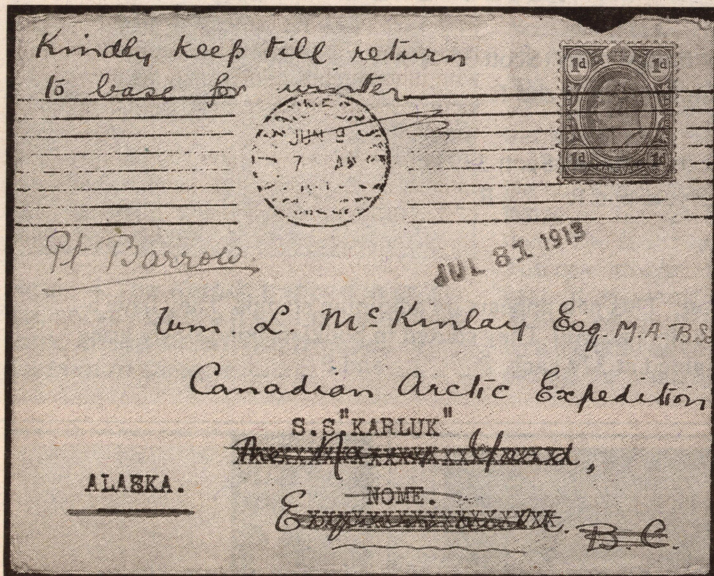 Kindly keep till return
to base for winter
1d 1d
JUN 9
7 AM
1d 1d
TRANSVAAL
Pt Barrow.
JUL 31 1913
Wm. L. Mc Kinlay Esq. M.A. B.Sc
Canadian Arctic Expedition
S.S "KARLUK"
The Yard,
ALASKA.
NOME.
B.C.